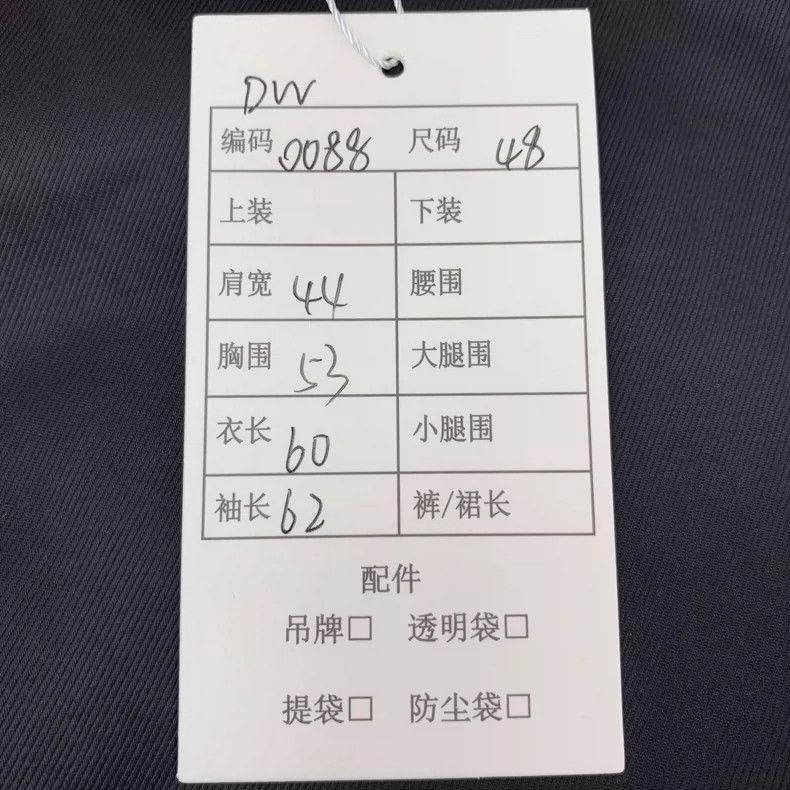 DW
编码 0088 尺码 48
上装 下装
肩宽 44 腰围
胸围 53 大腿围
衣长 60 小腿围
袖长 62 裤/裙长
配件
吊牌□ 透明袋□
提袋□ 防尘袋□